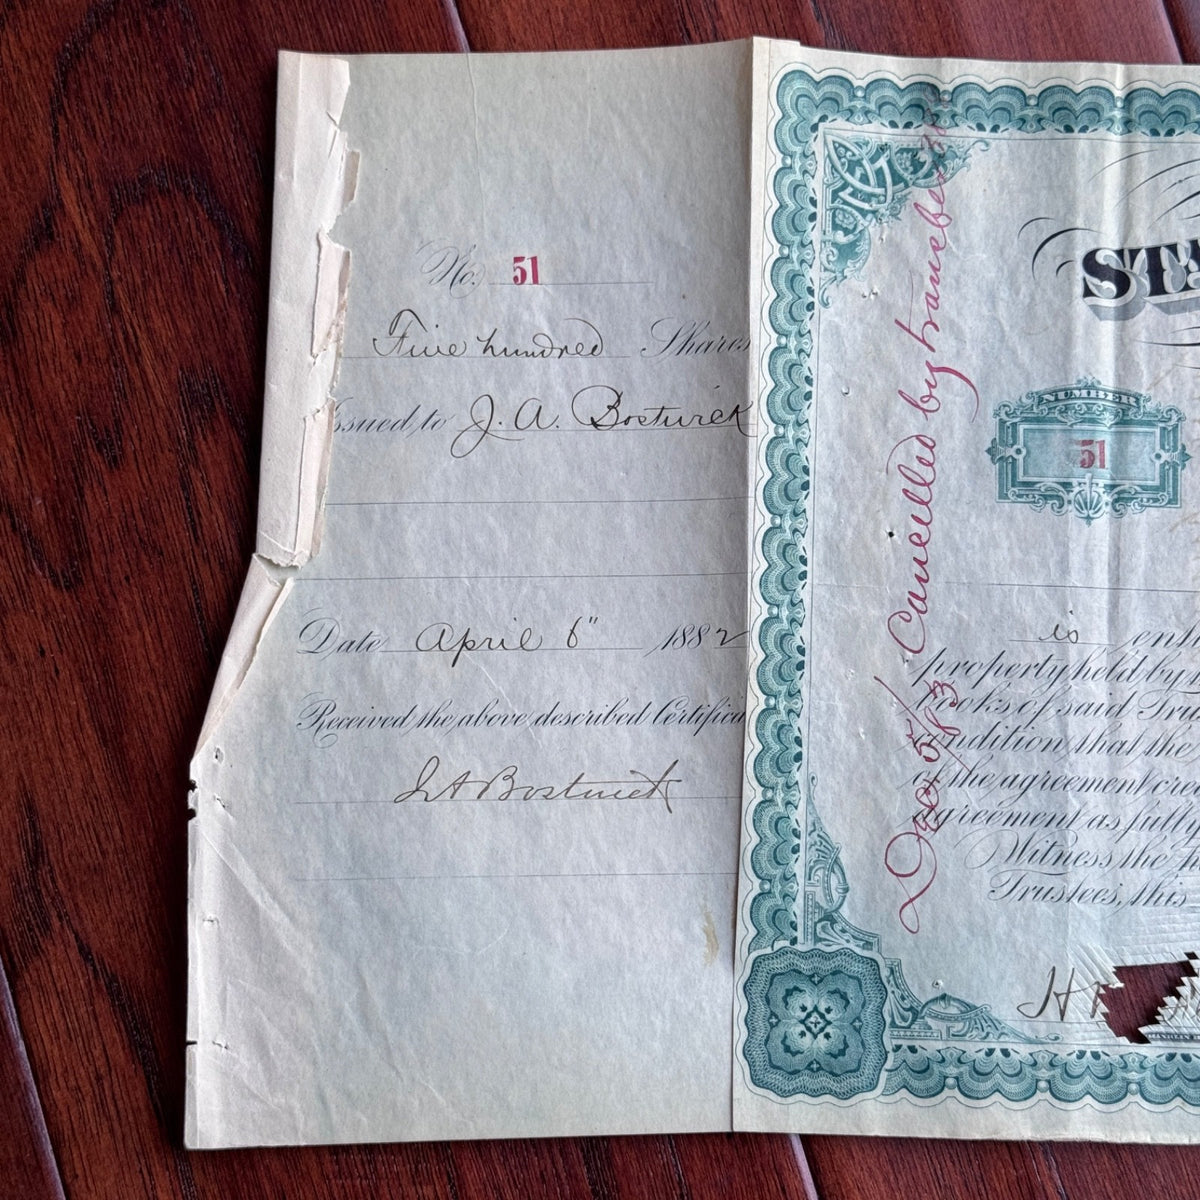 No. 51
Five hundred Shares
Issued to J. A. Bostwick
Date April 6" 1882
Received the above described Certifica
J A Bostwick
Cancelled by transfer
Dec 5/83
STA
NUMBER
51
is enti
property held by
books of said Tru
condition, that the
of the agreement cre
agreement as fully
Witness the
Trustees, this